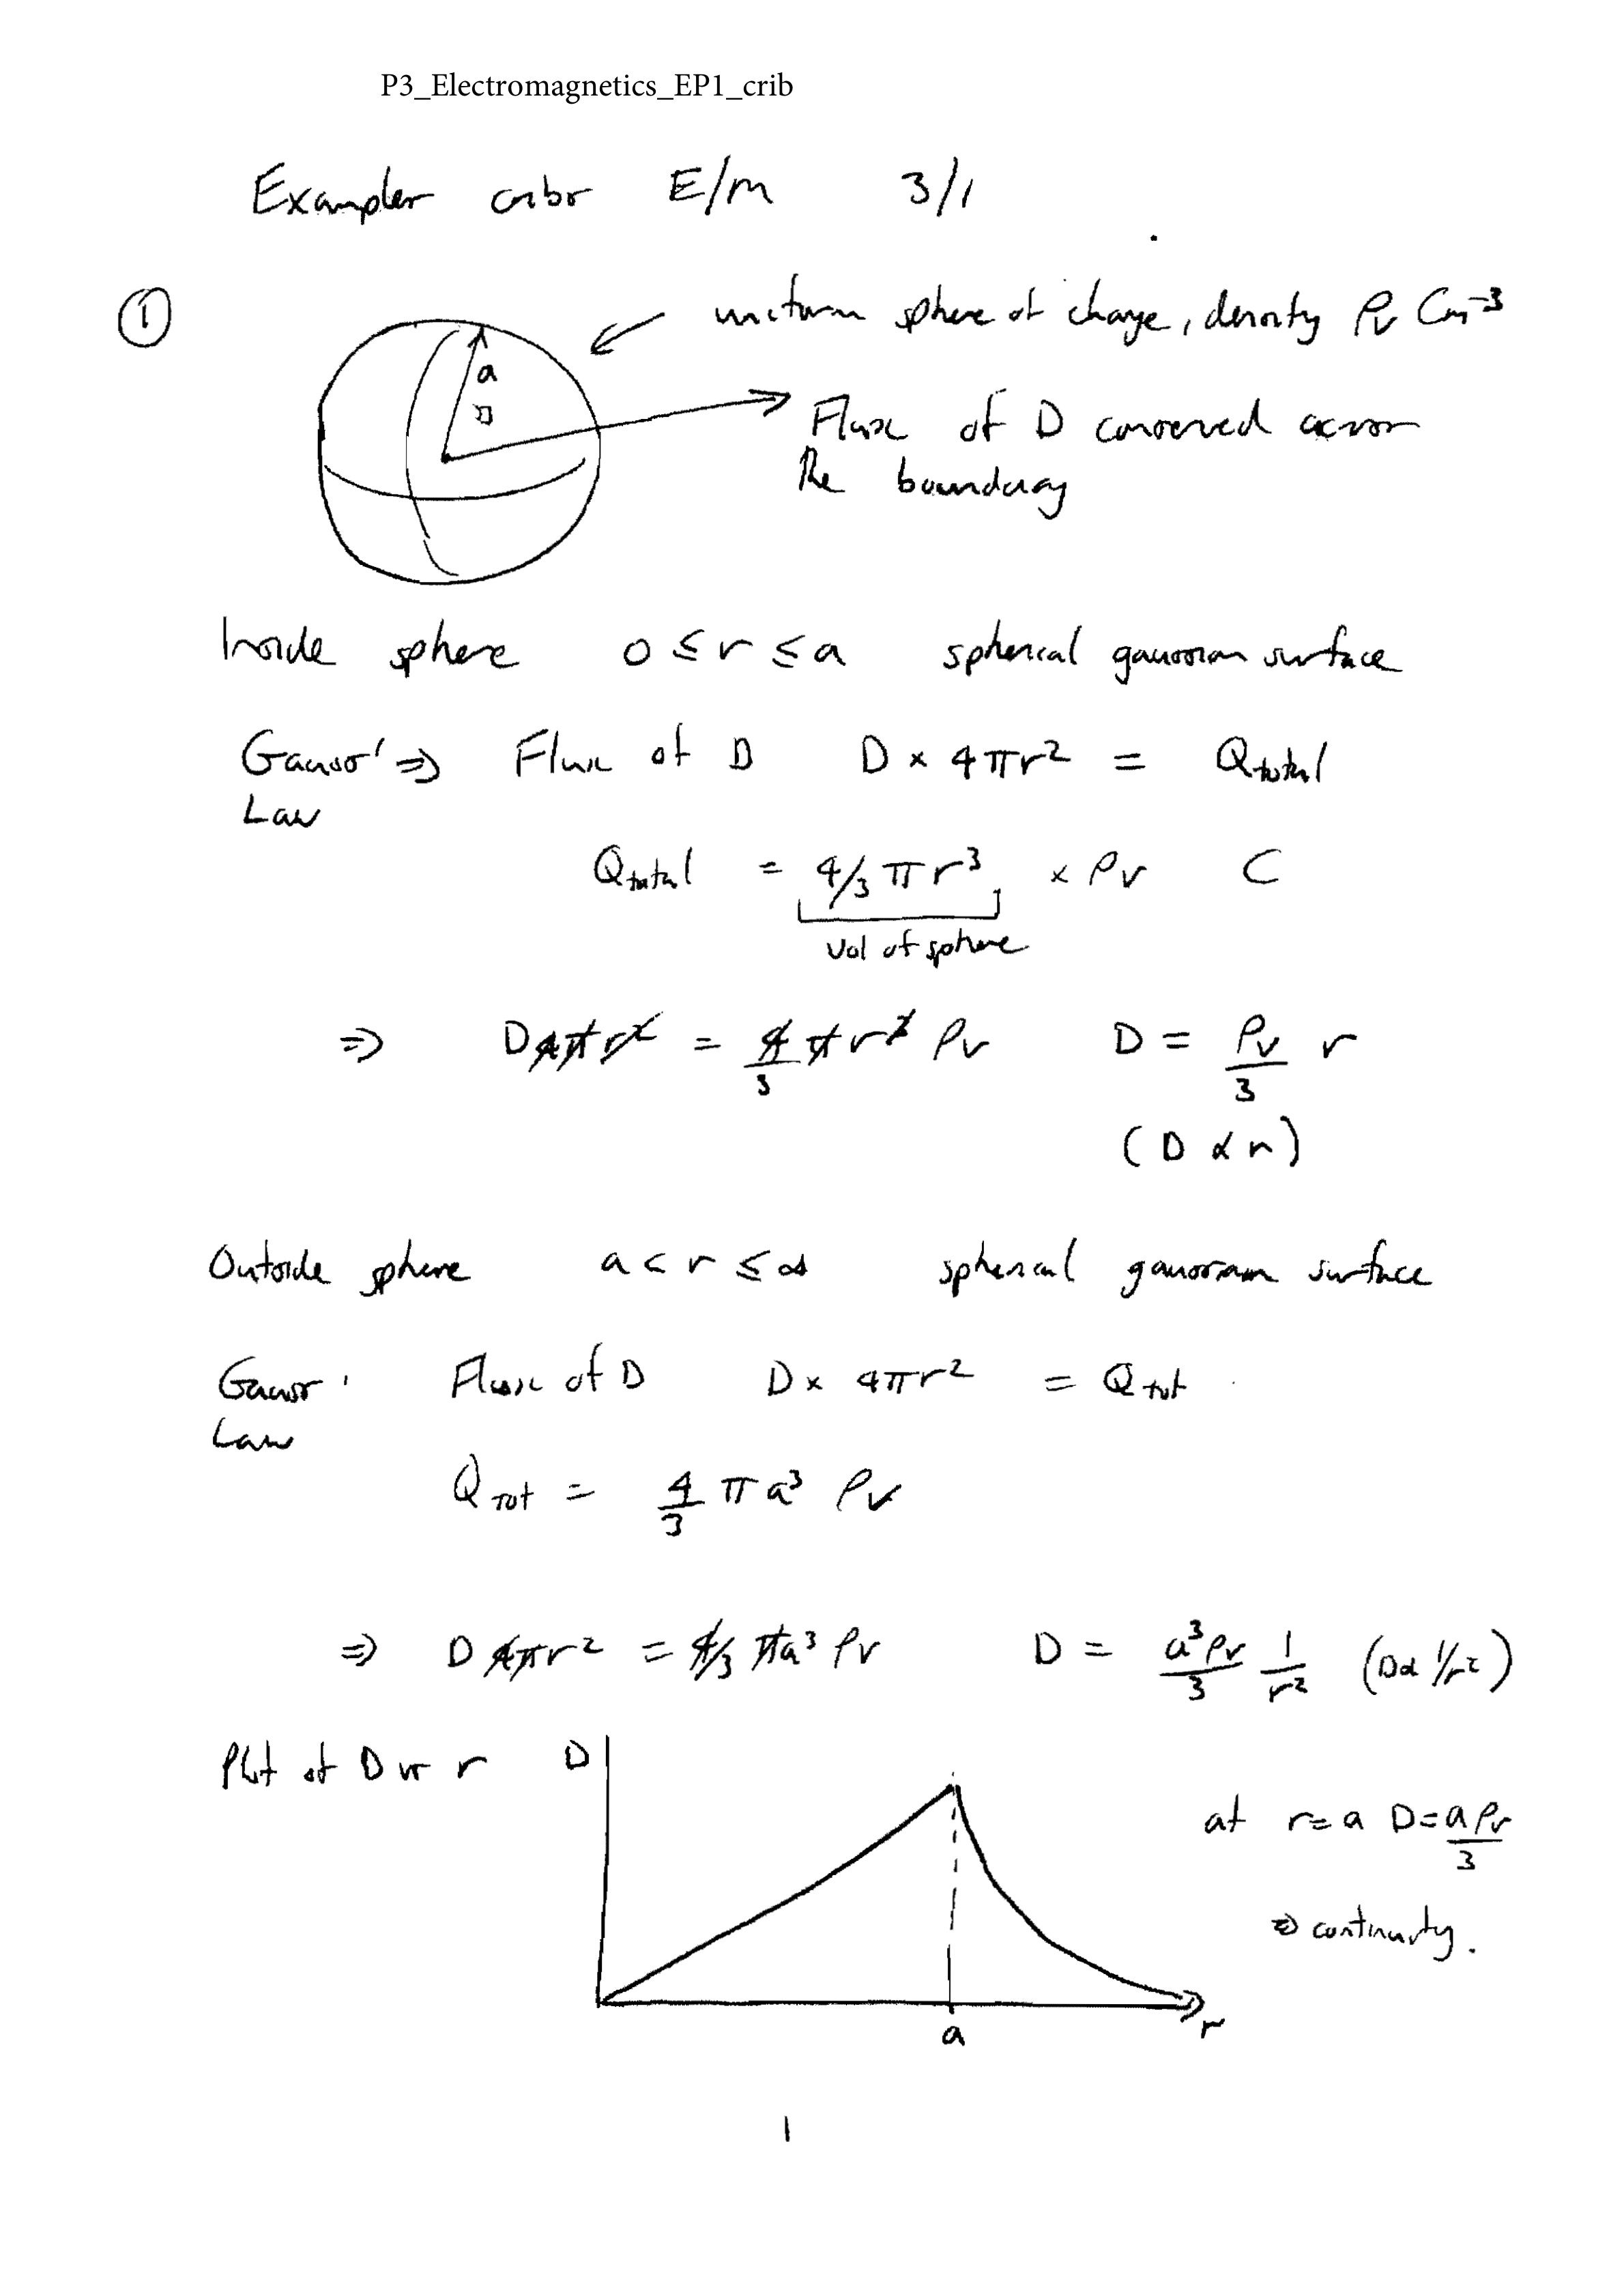 P3_Electromagnetics_EP1_crib
Examples cribs E/m 3/1
① uniform sphere of charge, density ρv Cm⁻³
a
Flux of D conserved across
the boundary
Inside sphere 0 ≤ r ≤ a spherical gaussian surface
Gauss' ⇒ Flux of D D × 4πr² = Qtotal
Law
Qtotal = 4/3 πr³ × ρv C
vol of sphere
⇒ D4πr² = 4/3 πr³ ρv D = ρv/3 r
(D ∝ r)
Outside sphere a < r ≤ ∞ spherical gaussian surface
Gauss' Flux of D D × 4πr² = Qtot
Law
QTOT = 4/3 πa³ ρv
⇒ D4πr² = 4/3 πa³ ρv D = a³ρv/3 1/r² (D∝ 1/r²)
Plot of D vs r D
at r = a D = aρv/3
⇒ continuity.
a
r
1